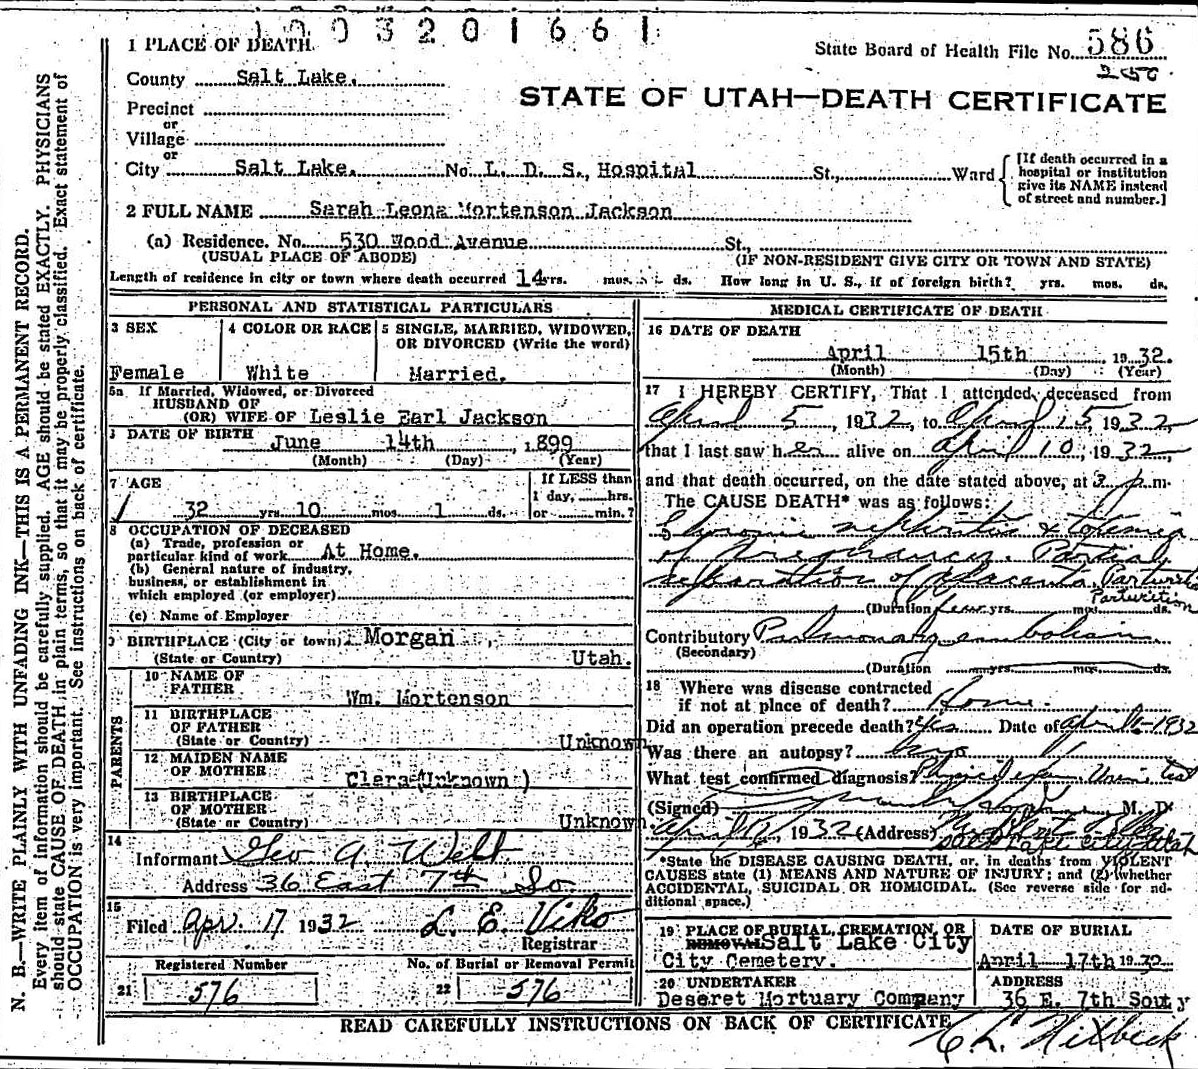 1003201661
1 PLACE OF DEATH
State Board of Health File No. 586
250
County Salt Lake.
STATE OF UTAH—DEATH CERTIFICATE
Precinct
or
Village
or
City Salt Lake. No. L. D. S., Hospital St., Ward
[If death occurred in a
hospital or institution
give its NAME instead
of street and number.]
2 FULL NAME Sarah Leona Mortenson Jackson
(a) Residence. No. 530 Wood Avenue St.,
(USUAL PLACE OF ABODE) (IF NON-RESIDENT GIVE CITY OR TOWN AND STATE)
Length of residence in city or town where death occurred 14 yrs. mos. ds. How long in U. S., if of foreign birth? yrs. mos. ds.
PERSONAL AND STATISTICAL PARTICULARS
3 SEX
Female
4 COLOR OR RACE
White
5 SINGLE, MARRIED, WIDOWED,
OR DIVORCED (Write the word)
Married.
5a If Married, Widowed, or Divorced
HUSBAND OF
(OR) WIFE OF Leslie Earl Jackson
DATE OF BIRTH June 14th, 1899
(Month) (Day) (Year)
7 AGE
32 yrs. 10 mos. 1 ds.
If LESS than
1 day, hrs.
or min.?
8 OCCUPATION OF DECEASED
(a) Trade, profession or
particular kind of work At Home.
(b) General nature of industry,
business, or establishment in
which employed (or employer)
(c) Name of Employer
9 BIRTHPLACE (City or town) Morgan
(State or Country) Utah.
PARENTS
10 NAME OF
FATHER Wm. Mortenson
11 BIRTHPLACE
OF FATHER
(State or Country) Unknown
12 MAIDEN NAME
OF MOTHER Clara (Unknown )
13 BIRTHPLACE
OF MOTHER
(State or Country) Unknown
14
Informant Geo A. Welt
Address 36 East 7th So.
15
Filed Apr. 17 1932 L. E. Viko
Registrar
Registered Number
21 576
No. of Burial or Removal Permit
22 576
MEDICAL CERTIFICATE OF DEATH
16 DATE OF DEATH
April 15th 1932.
(Month) (Day) (Year)
17 I HEREBY CERTIFY, That I attended deceased from
April 5, 1932, to April 15, 1932,
that I last saw her alive on April 10, 1932,
and that death occurred, on the date stated above, at 3 p.m.
The CAUSE DEATH* was as follows:
Chronic nephritis & toxemia
of pregnancy. Partial
separation of placenta, Parturition
Parturition
(Duration few yrs. mos. ds.
Contributory Pulmonary embolism
(Secondary)
(Duration yrs. mos. ds.
18 Where was disease contracted
if not at place of death? Home.
Did an operation precede death? Yes Date of April 1932
Was there an autopsy? no
What test confirmed diagnosis?
(Signed) M. D.
April 1932 (Address)
Salt Lake City Utah
*State the DISEASE CAUSING DEATH, or, in deaths from VIOLENT
CAUSES state (1) MEANS AND NATURE OF INJURY; and (2) whether
ACCIDENTAL, SUICIDAL OR HOMICIDAL. (See reverse side for ad-
ditional space.)
19 PLACE OF BURIAL, CREMATION, OR
REMOVAL Salt Lake City
City Cemetery.
DATE OF BURIAL
April 17th 1932
20 UNDERTAKER
Deseret Mortuary Company
ADDRESS
36 E. 7th South
READ CAREFULLY INSTRUCTIONS ON BACK OF CERTIFICATE
N. B.—WRITE PLAINLY WITH UNFADING INK—THIS IS A PERMANENT RECORD.
Every item of information should be carefully supplied. AGE should be stated EXACTLY. PHYSICIANS
should state CAUSE OF DEATH in plain terms, so that it may be properly classified. Exact statement of
OCCUPATION is very important. See instructions on back of certificate.